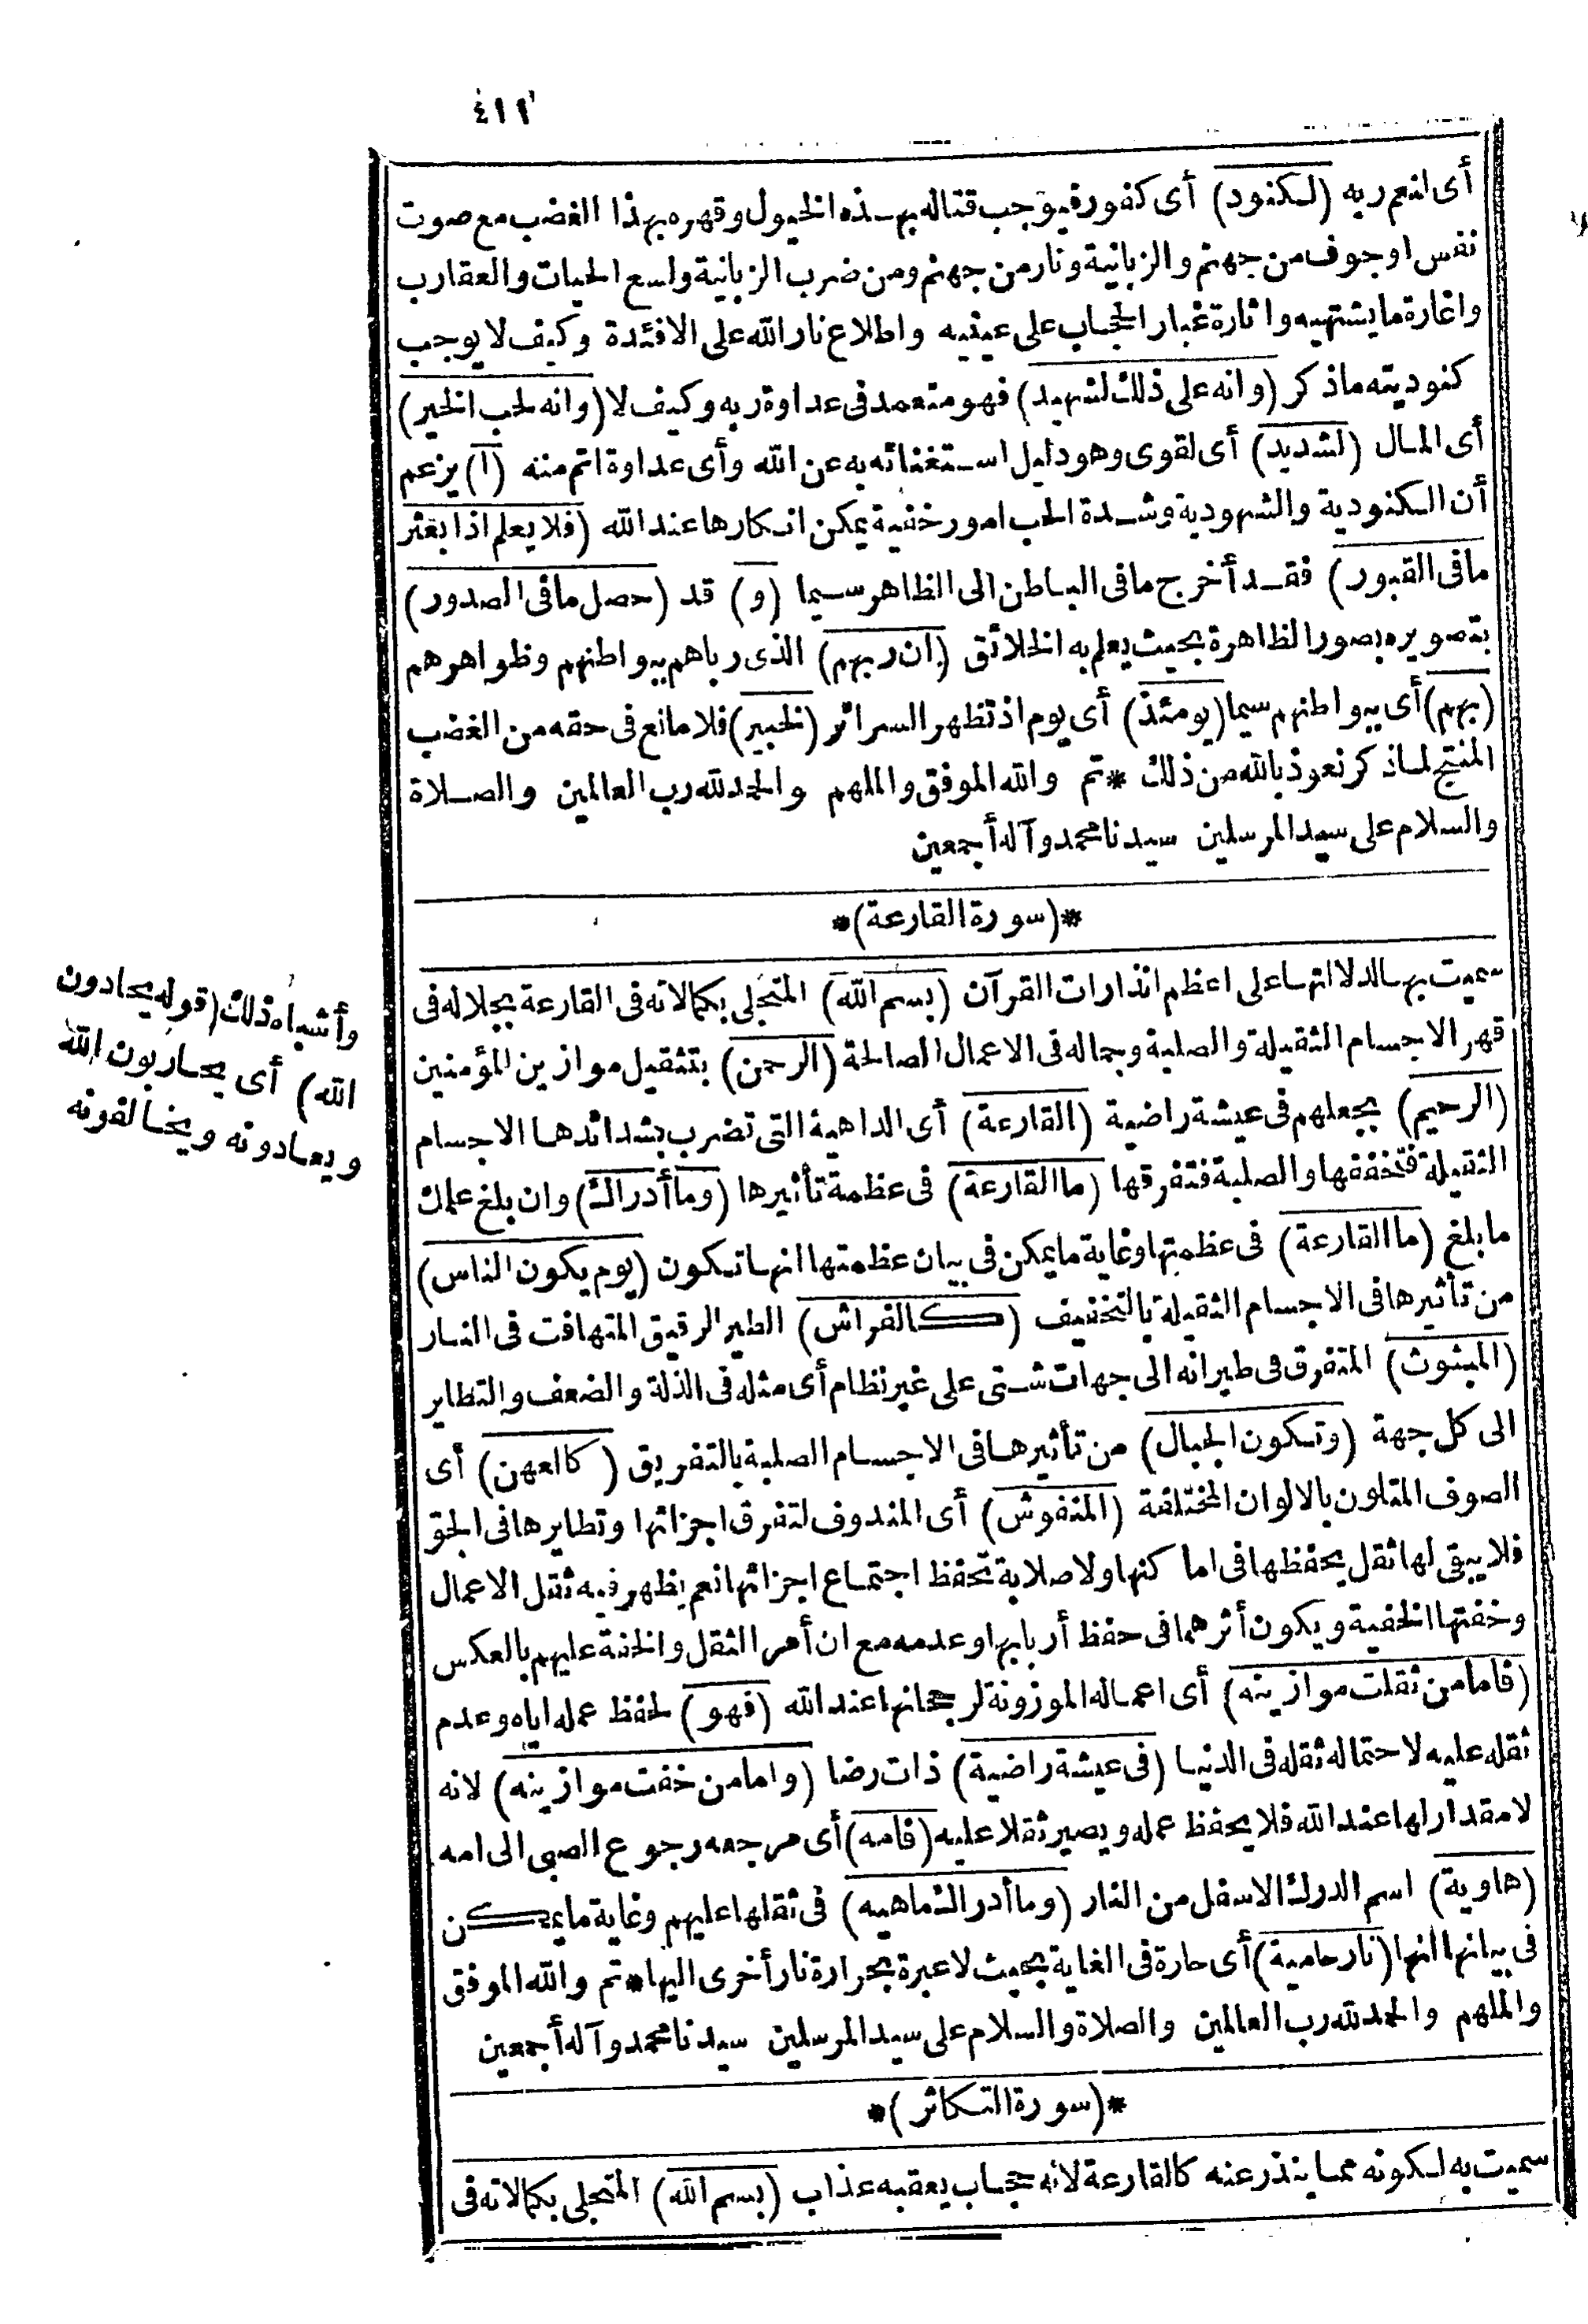 ٤١١
أى لنعم ربه (لكنود) أى كفور فيوجب قتاله بهذه الخيول وقهره بهذا الغضب مع صوت
نفس او جوف من جهنم والزبانية ونار من جهنم ومن ضرب الزبانية ولسع الحيات والعقارب
واغارة مايشتهيه واثارة غبار الحجاب على عينيه واطلاع نار الله على الافئدة وكيف لا يوجب
كنوديته ماذكر (وانه على ذلك لشهيد) فهو متعمد فى عداوة ربه وكيف لا (وانه لحب الخير)
أى المال (لشديد) أى لقوى وهو دليل استغنائه به عن الله وأى عداوة اتم منه (ا) يزعم
أن الكنودية والشهودية وشدة الحب امور خفية يمكن انكارها عند الله (فلا يعلم اذا بعثر
مافى القبور) فقد أخرج مافى الباطن الى الظاهر سيما (و) قد (حصل مافى الصدور)
بتصويره بصور الظاهرة بحيث يعلم به الخلائق (ان ربهم) الذى رباهم ببواطنهم وظواهرهم
(بهم) أى ببواطنهم سيما (يومئذ) أى يوم اذ تظهر السرائر (لخبير) فلا مانع فى حقه من الغضب
المنتج لماذكر نعوذ بالله من ذلك * تم والله الموفق والملهم والحمد لله رب العالمين والصلاة
والسلام على سيد المرسلين سيدنا محمد وآله أجمعين
*(سورة القارعة)*
سميت بها لدلالتها على اعظم انذارات القرآن (بسم الله) المتجلى بكمالاته فى القارعة بجلاله فى
قهر الاجسام الثقيلة والصلبة وجماله فى الاعمال الصالحة (الرحمن) بتثقيل موازين المؤمنين
(الرحيم) بجعلهم فى عيشة راضية (القارعة) أى الداهية التى تضرب بشدائدها الاجسام
الثقيلة فتخففها والصلبة فتفرقها (ما القارعة) فى عظمة تأثيرها (وما أدراك) وان بلغ علمك
ما بلغ (ما القارعة) فى عظمتها وغاية مايمكن فى بيان عظمتها انها تكون (يوم يكون الناس)
من تأثيرها فى الاجسام الثقيلة بالتخفيف (كالفراش) الطير الرقيق المتهافت فى النار
(المبثوث) المتفرق فى طيرانه الى جهات شتى على غير نظام أى مثله فى الذلة والضعف والتطاير
الى كل جهة (وتكون الجبال) من تأثيرها فى الاجسام الصلبة بالتفريق (كالعهن) أى
الصوف المتلون بالالوان المختلفة (المنفوش) أى المندوف لتفرق اجزائها وتطايرها فى الجو
فلا يبقى لها ثقل يحفظها فى اماكنها ولا صلابة تحفظ اجتماع اجزائها نعم يظهر فيه ثقل الاعمال
وخفتها الخفية ويكون أثرهما فى حفظ أربابها وعدمه مع ان أمر الثقل والخفة عليهم بالعكس
(فامامن ثقلت موازينه) أى اعماله الموزونة لرجحانها عند الله (فهو) لحفظ عمله اياه وعدم
ثقله عليه لاحتماله ثقله فى الدنيا (فى عيشة راضية) ذات رضا (وامامن خفت موازينه) لانه
لا مقدار لها عند الله فلا يحفظ عمله ويصير ثقلا عليه (فامه) أى مرجعه رجوع الصبى الى امه
(هاوية) اسم الدرك الاسفل من النار (وما أدراك ماهيه) فى ثقلها عليهم وغاية مايمكن
فى بيانها انها (نار حامية) أى حارة فى الغاية بحيث لاعبرة بحرارة نار أخرى اليها * تم والله الموفق
والملهم والحمد لله رب العالمين والصلاة والسلام على سيد المرسلين سيدنا محمد وآله أجمعين
*(سورة التكاثر)*
سميت به لكونه مما ينذر عنه كالقارعة لانه حجاب يعقبه عذاب (بسم الله) المتجلى بكمالاته فى
وأشباه ذلك (قوله يحادون
الله) أى يحاربون الله
ويعادونه ويخالفونه